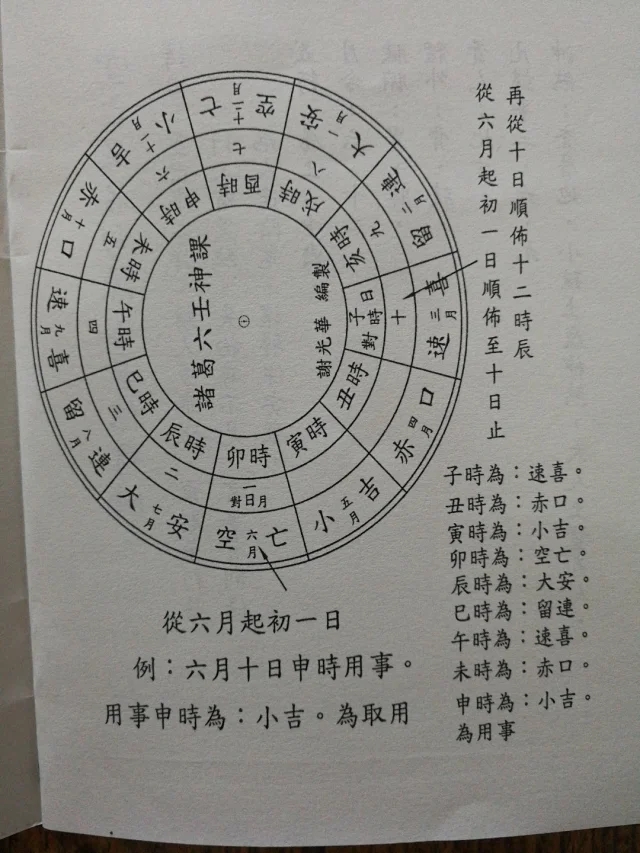 再從十日順佈十二時辰
從六月起初一日順佈至十日止
諸葛六壬神課
謝光華 編製
大安 一月
留連 二月
速喜 三月
赤口 四月
小吉 五月
空亡 六月
大安 七月
留連 八月
速喜 九月
赤口 十月
小吉 十一月
空亡 十二月
一日對月
二
三
四
五
六
七
八
九
十
子時對日
丑時
寅時
卯時
辰時
巳時
午時
未時
申時
酉時
戌時
亥時
子時為：速喜。
丑時為：赤口。
寅時為：小吉。
卯時為：空亡。
辰時為：大安。
巳時為：留連。
午時為：速喜。
未時為：赤口。
申時為：小吉。
為用事
從六月起初一日
例：六月十日申時用事。
用事申時為：小吉。為取用